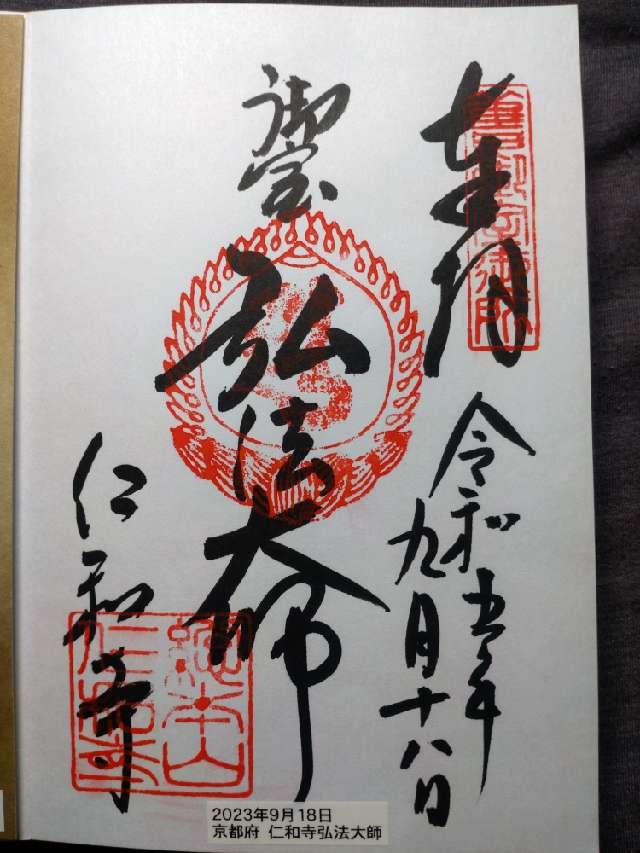 奉拝
令和五年
九月十八日
御宝
弘法大師
仁和寺
總本山
仁和寺
2023年9月18日
京都府 仁和寺弘法大師